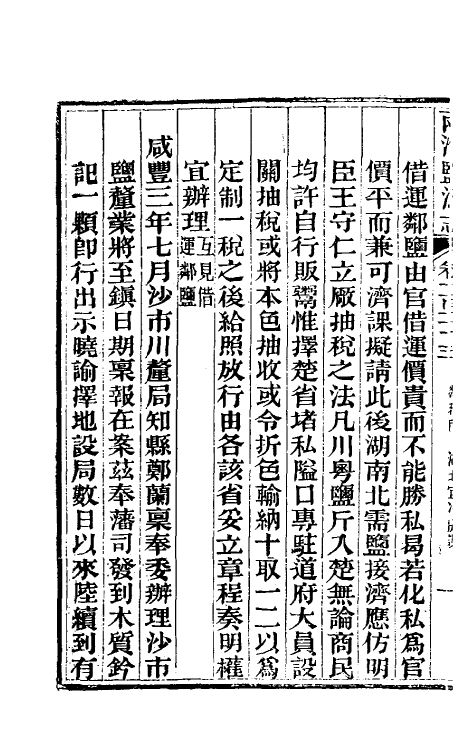 借運鄰鹽由官借運價貴而不能勝私曷若化私爲官
價平而兼可濟課擬請此後湖南北需鹽接濟應仿明
臣王守仁立厰抽稅之法凡川粵鹽斤入楚無論商民
均許自行販鬻惟擇楚省堵私隘口專駐道府大員設
關抽稅或將本色抽收或令折色輸納十取一二以爲
定制一稅之後給照放行由各該省妥立章程奏明權
宜辦理互見借運鄰鹽
咸豐三年七月沙市川釐局知縣鄭蘭稟奉委辦理沙市
鹽釐業將至鎮日期稟報在案茲奉藩司發到木質鈐
記一顆卽行出示曉諭擇地設局數日以來陸續到有